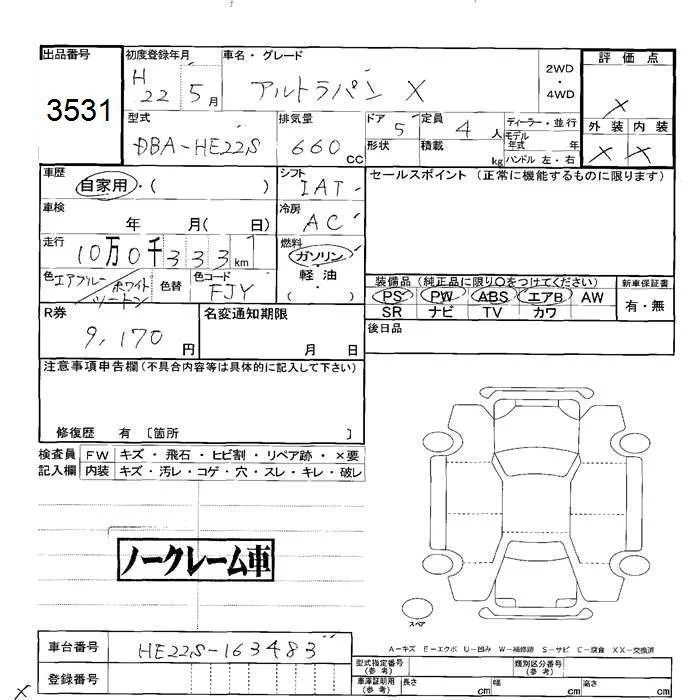 出品番号
3531
初度登録年月
H 22 5月
車名・グレード
アルトラパン X
2WD・4WD
評価点
X
外装 内装
X X
型式
DBA-HE22S
排気量
660cc
ドア 5
形状
定員 4人
積載 kg
ディーラー・並行
モデル年式 年
ハンドル 左・右
車歴
自家用・( )
シフト
IAT
セールスポイント(正常に機能するものに限ります)
車検
年 月( 日)
冷房
AC
走行
10万0千333km
燃料
ガソリン
軽油
( ・ )
色 エアブルー/ホワイトツートン
色替
色コード
FJY
装備品(純正品に限り○をつけてください)
PS PW ABS エアB AW
SR ナビ TV カワ
新車保証書
有・無
R券
9,170円
名変通知期限
月 日
後日品
注意事項申告欄(不具合内容等は具体的に記入して下さい)
修復歴 有 〔箇所 〕
検査員記入欄
FW キズ・飛石・ヒビ割・リペア跡・×要
内装 キズ・汚レ・コゲ・穴・スレ・キレ・破レ
ノークレーム車
スペア
A-キズ E-エクボ U-凹み W-補修跡 S-サビ C-腐食 XX-交換済
車台番号
HE22S-163483
登録番号
型式指定番号(参考)
類別区分番号(参考)
車庫証明用(参考)
長さ cm 幅 cm 高さ cm
X